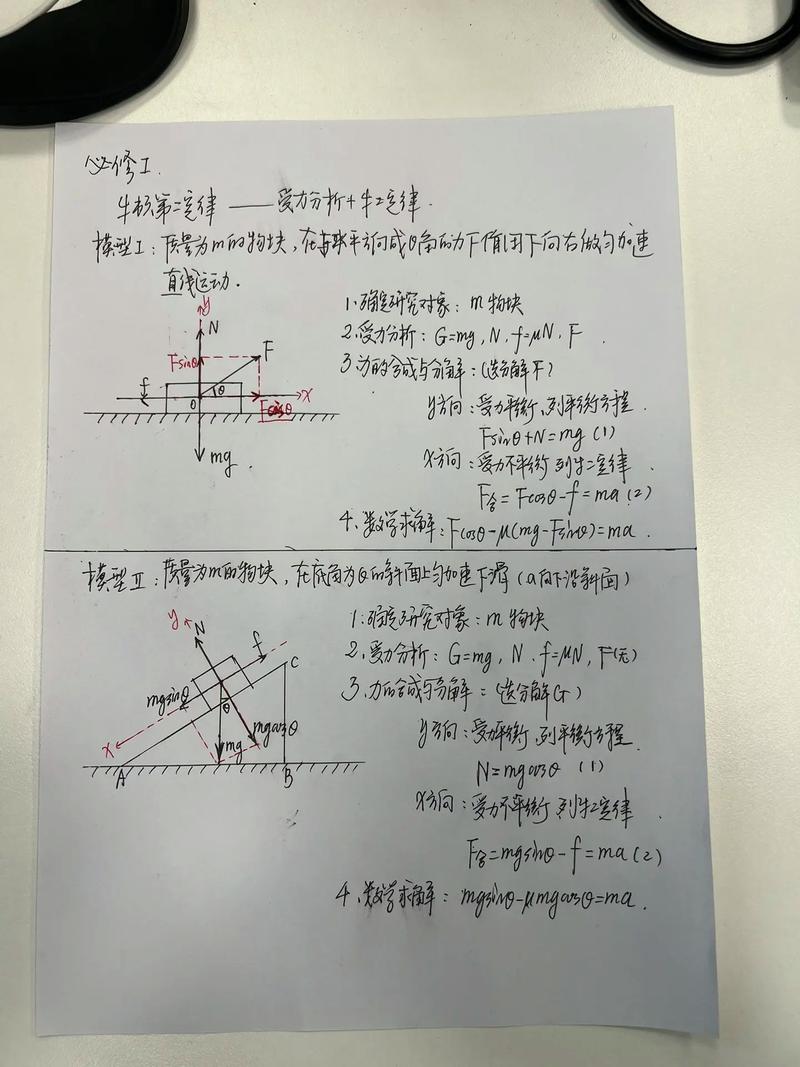 必修I.
牛顿第二定律——受力分析+牛二定律.
模型I:质量为m的物块,在与水平方向成θ角的力F作用下向右做匀加速
直线运动.
y
N
Fsinθ
F
f
θ
0
x
Fcosθ
mg.
1.确定研究对象:m物块
2.受力分析:G=mg,N,f=μN,F.
3.力的合成与分解:(选分解F)
y方向:受力平衡,列平衡方程.
Fsinθ+N=mg (1)
x方向:受力不平衡,列牛二定律.
F合=Fcosθ-f=ma(2)
4.数学求解:Fcosθ-μ(mg-Fsinθ)=ma.
模型II:质量为m的物块,在底角为θ的斜面上匀加速下滑(a向下沿斜面)
y
N
f
C
mgsinθ
θ
mgcosθ
x
mg
A
B
1.确定研究对象:m物块
2.受力分析:G=mg,N.f=μN,F(无)
3.力的合成与分解:(选分解G)
y方向:受力平衡,列平衡方程.
N=mgcosθ (1)
x方向:受力不平衡,列牛二定律.
F合=mgsinθ-f=ma(2)
4.数学求解:mgsinθ-μmgcosθ=ma.